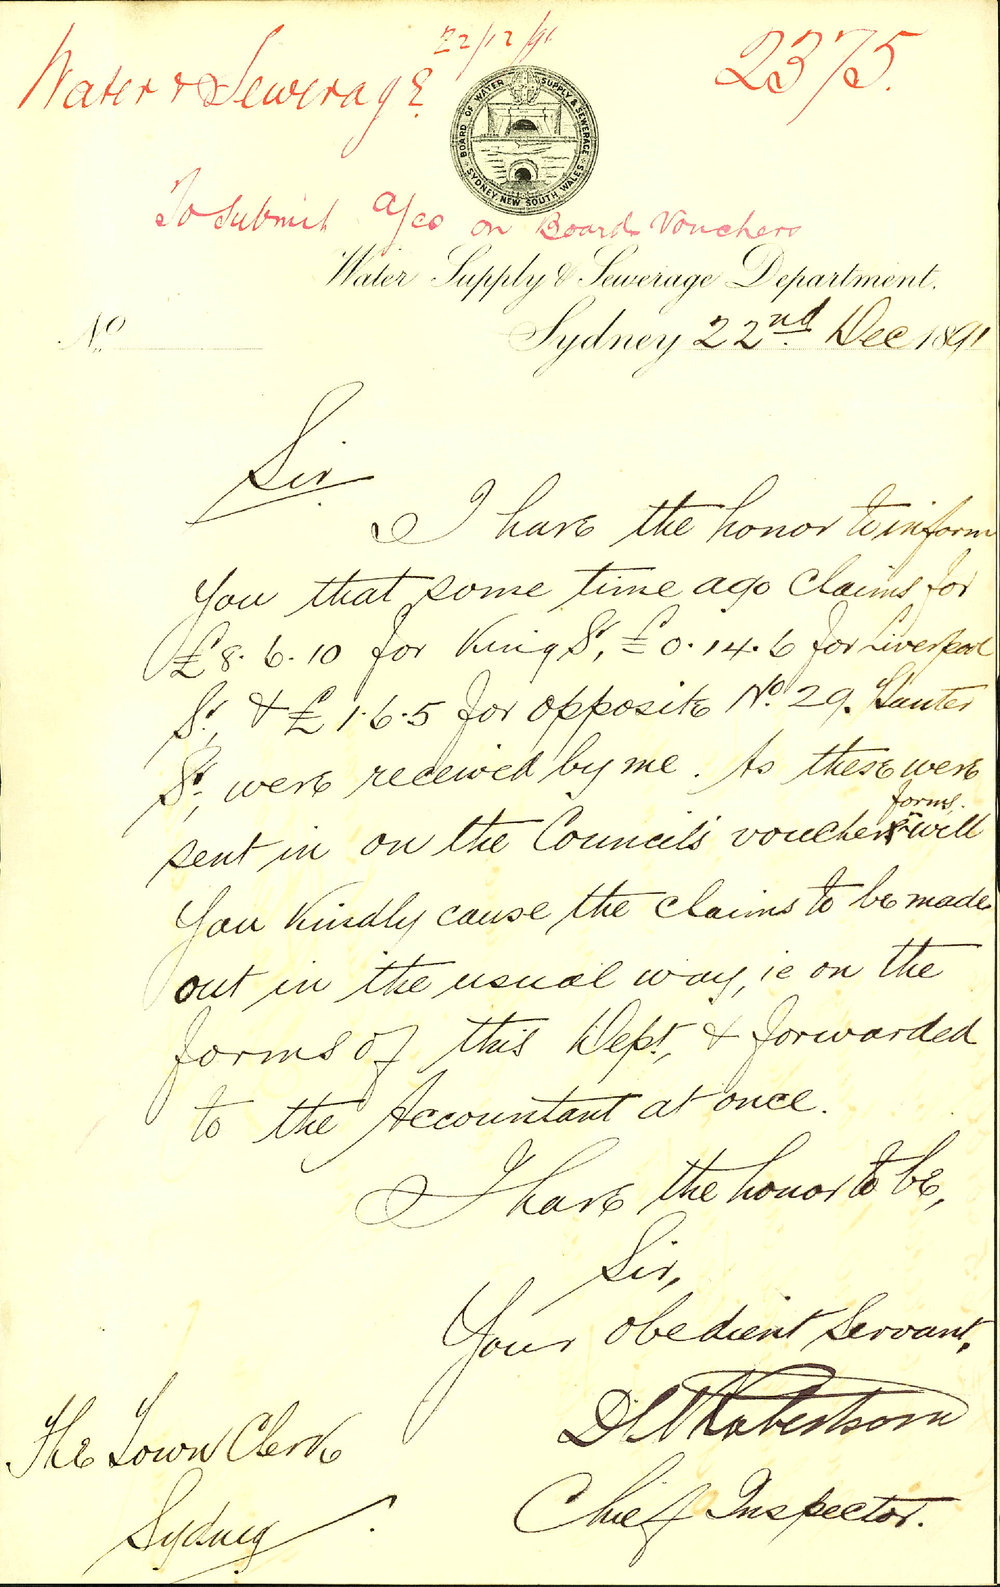 22/12/91
Water & Sewerage 2375.
BOARD OF WATER SUPPLY & SEWERAGE
SYDNEY NEW SOUTH WALES
To Submit a/cs on Board Vouchers
Water Supply & Sewerage Department.
No Sydney 22nd Dec 1891
Sir
I have the honor to inform
you that some time ago claims for
£8.6.10 for King St, £0.14.6 for Liverpool
St, & £1.6.5 for opposite No. 29.
St, were received by me. As these were
forms.
sent in on the Council's voucher will
you kindly cause the claims to be made
out in the usual way, ie on the
forms of this Dept, & forwarded
to the Accountant at once.
I have the honor to be,
Sir,
Your obedient Servant,
Robertson
The Town Clerk
Chief Inspector.
Sydney